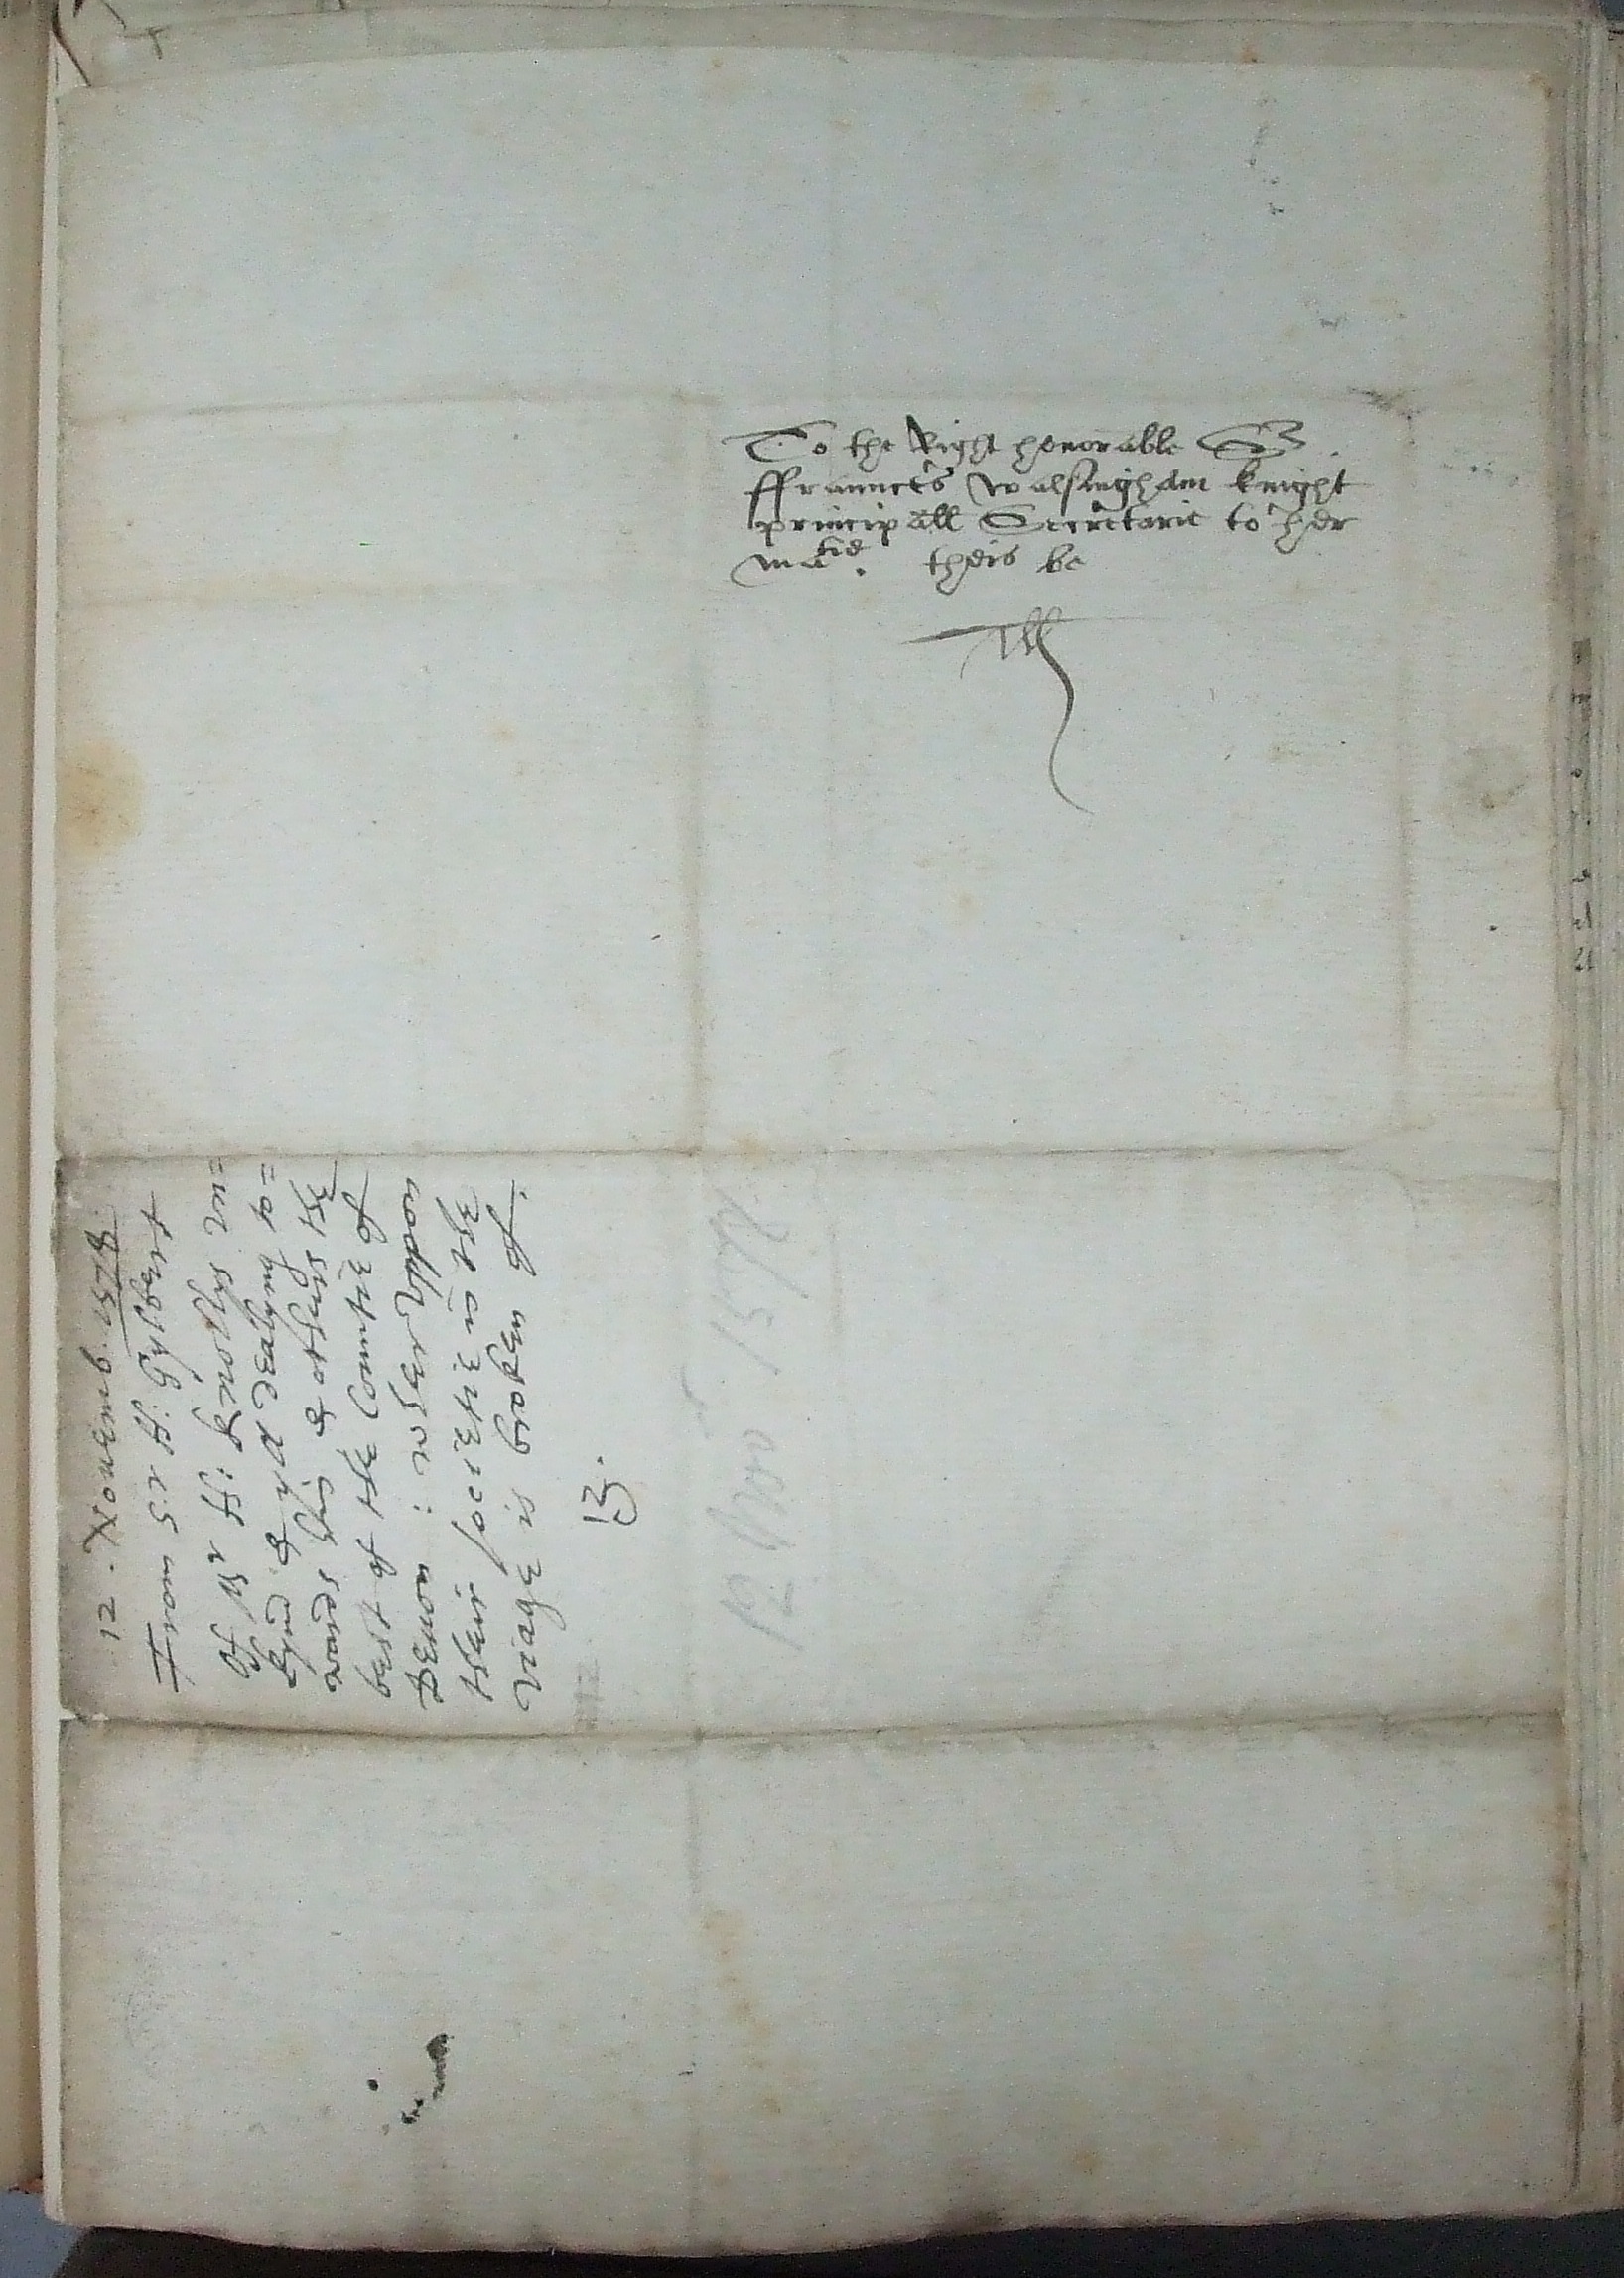 To the Right honorable Sr.
ffraunces walsingham knight
principall Secretarie to her
matie. theis be
12. Nouemb. 1578.
From Sr H: Gylbert
Of Mr H: knollys vn=
kynd & yll dealyng to=
wards hym & others the
best of the Countie of
Deuon: wherVppon
their societie in the
viage is broken of.
13.
12 Nov 1578